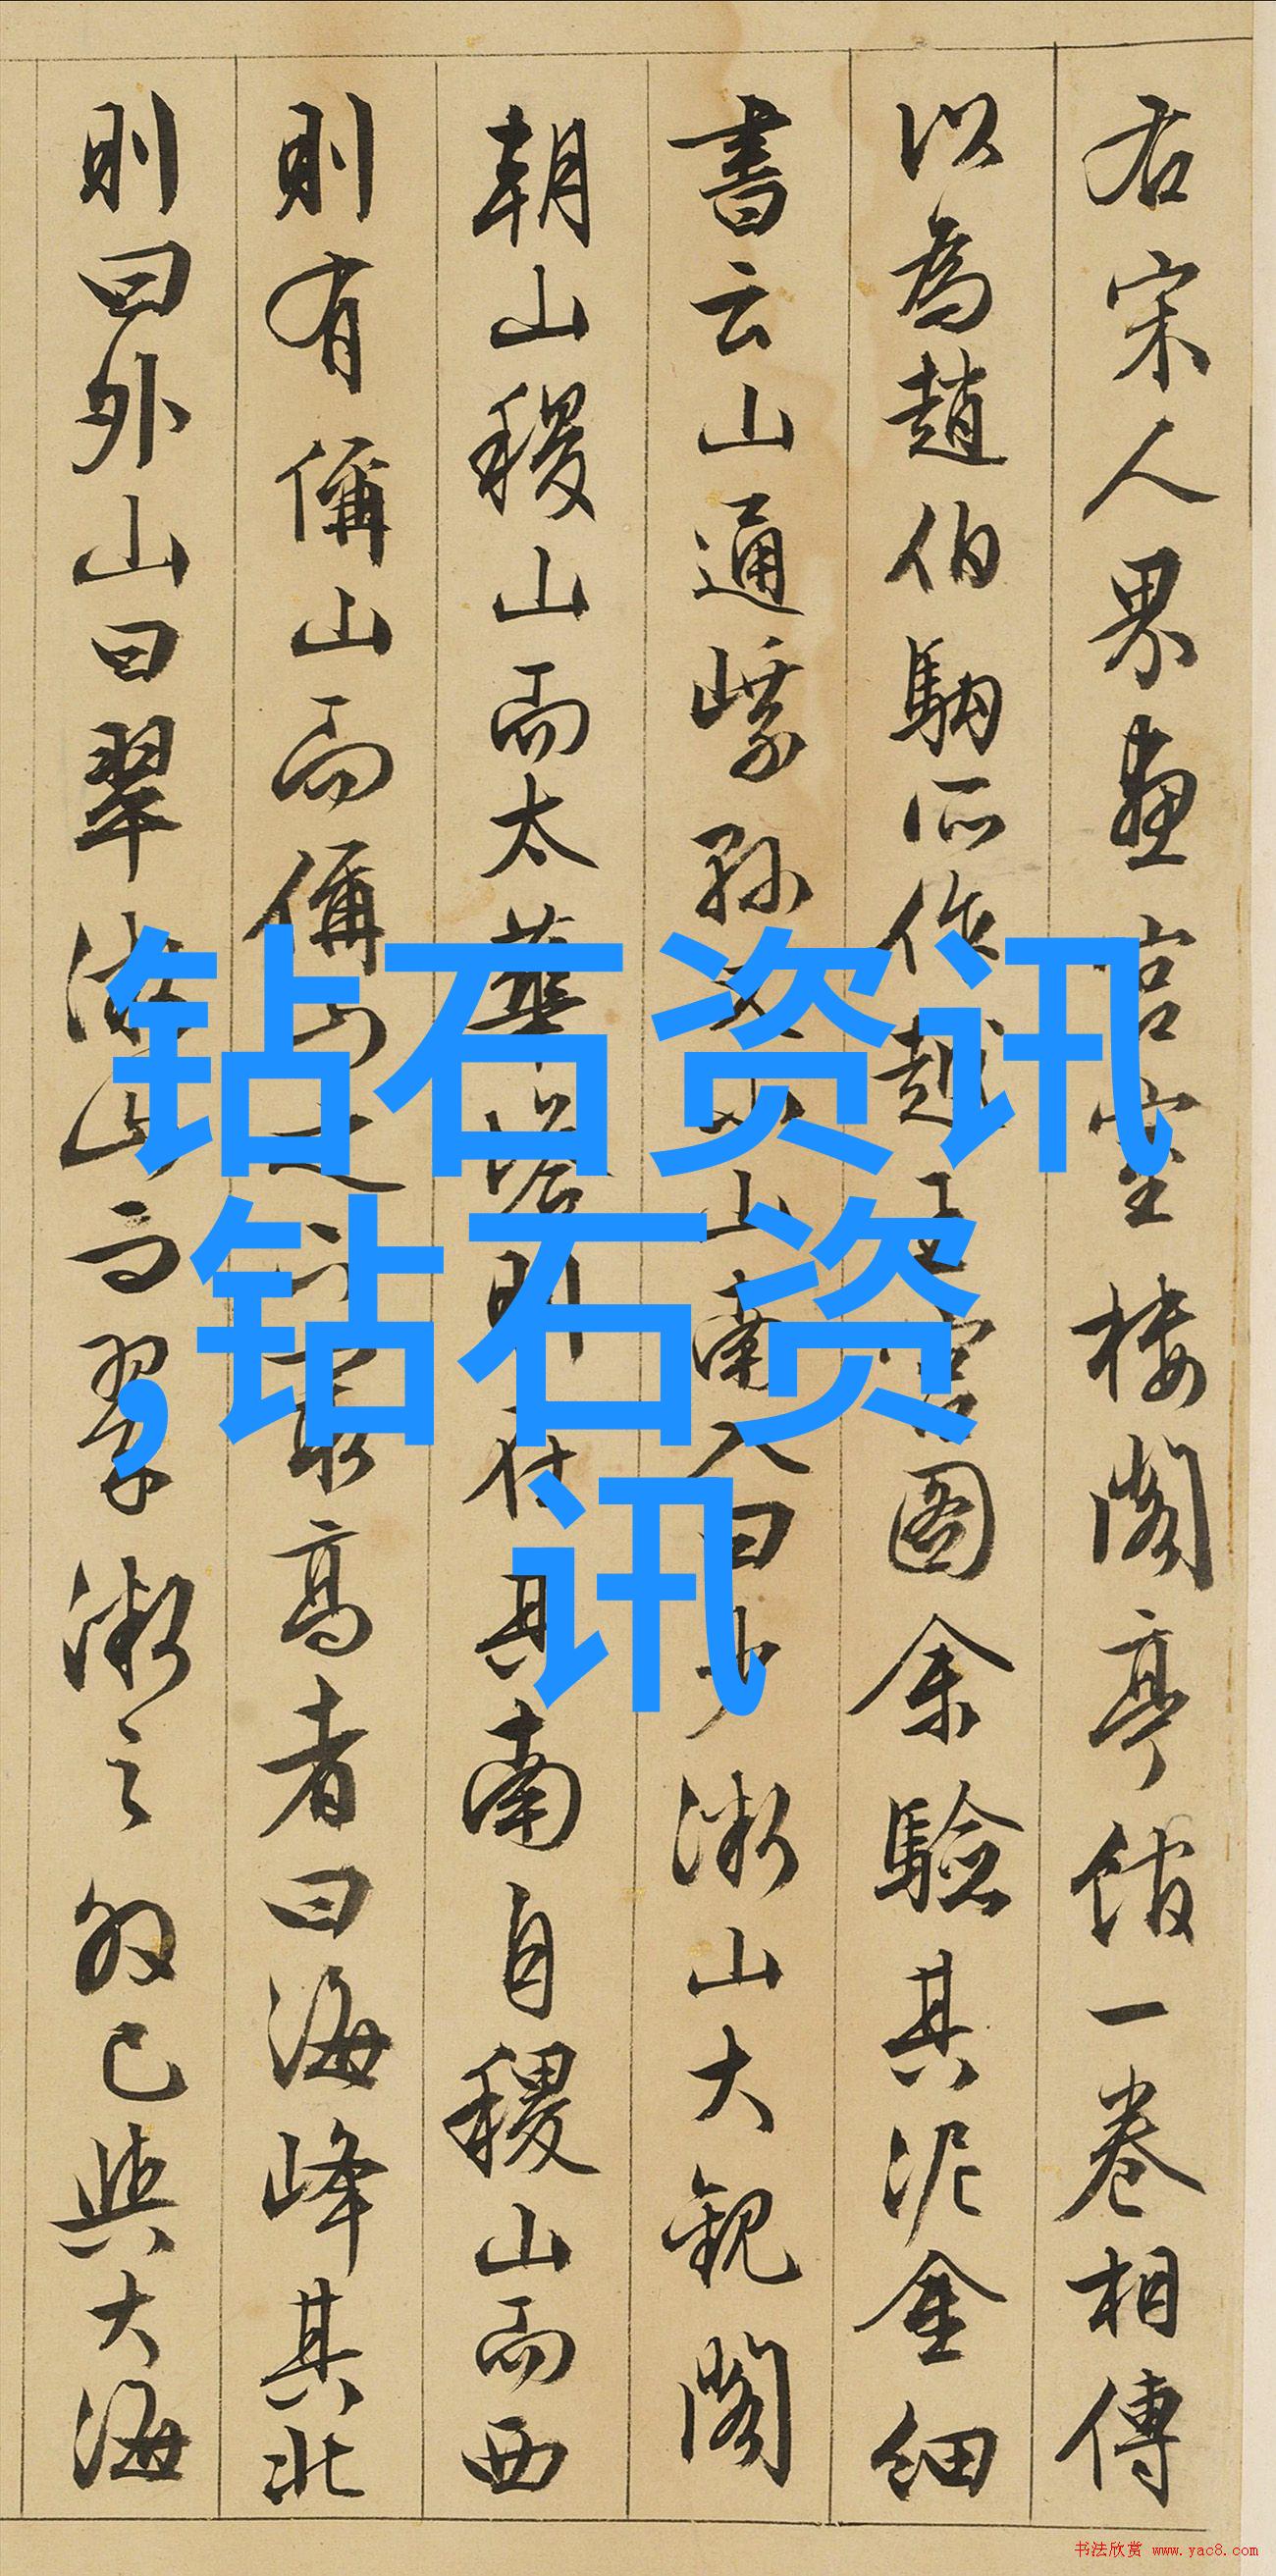 右宋人界畫宮室樓閣亭館一卷相傳
以為趙伯駒所作越王宮圖余驗其泥金細
書云山通 山南入曰 山大觀閣
朝山稷山而太華 則在其南自稷山而西
則有偁山而偁山之 最高者曰海峰其北
則曰外山曰翠 山 之 已與大海
钻石资讯
,钻石资
讯
书法欣赏 www.yac8.com